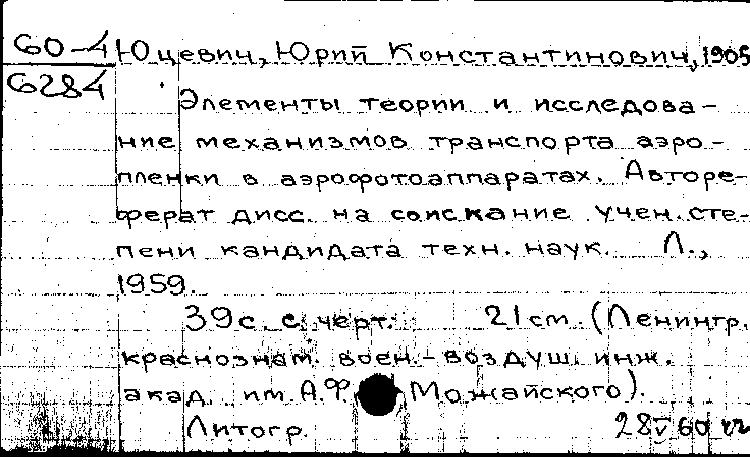 60-4
6284
Юцевич, Юрий Константинович, 1905
Элементы теории и исследова-
ние механизмов транспорта аэро-
пленки в аэрофотоаппаратах. Авторе-
ферат дисс. на соискание учен. сте-
пени кандидата техн. наук. Л.,
1959.
39с. с черт. 21 см. (Ленингр.
краснознам. воен.-воздуш. инж.
акад. им. А.Ф. Можайского).
Литогр. 28 V 60